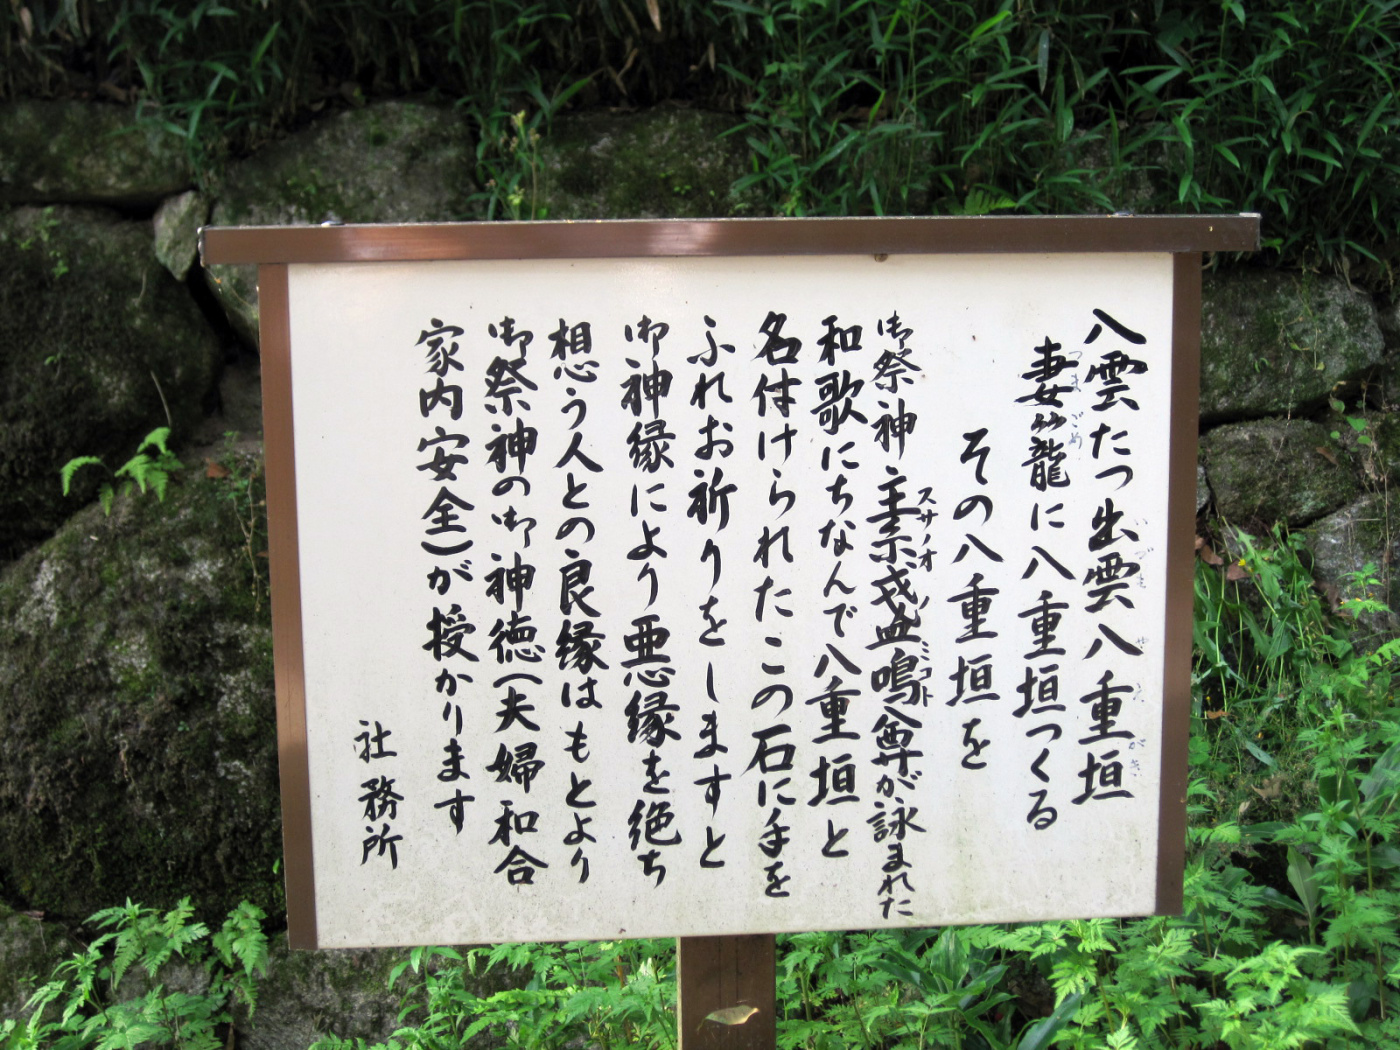 八雲たつ出雲八重垣
妻籠に八重垣つくる
その八重垣を
御祭神 素戔嗚尊が詠まれた
和歌にちなんで八重垣と
名付けられたこの石に手を
ふれお祈りをしますと
御神縁により悪縁を絶ち
想う人との良縁はもとより
御祭神の御神徳(夫婦和合
家内安全)が授かります
社務所